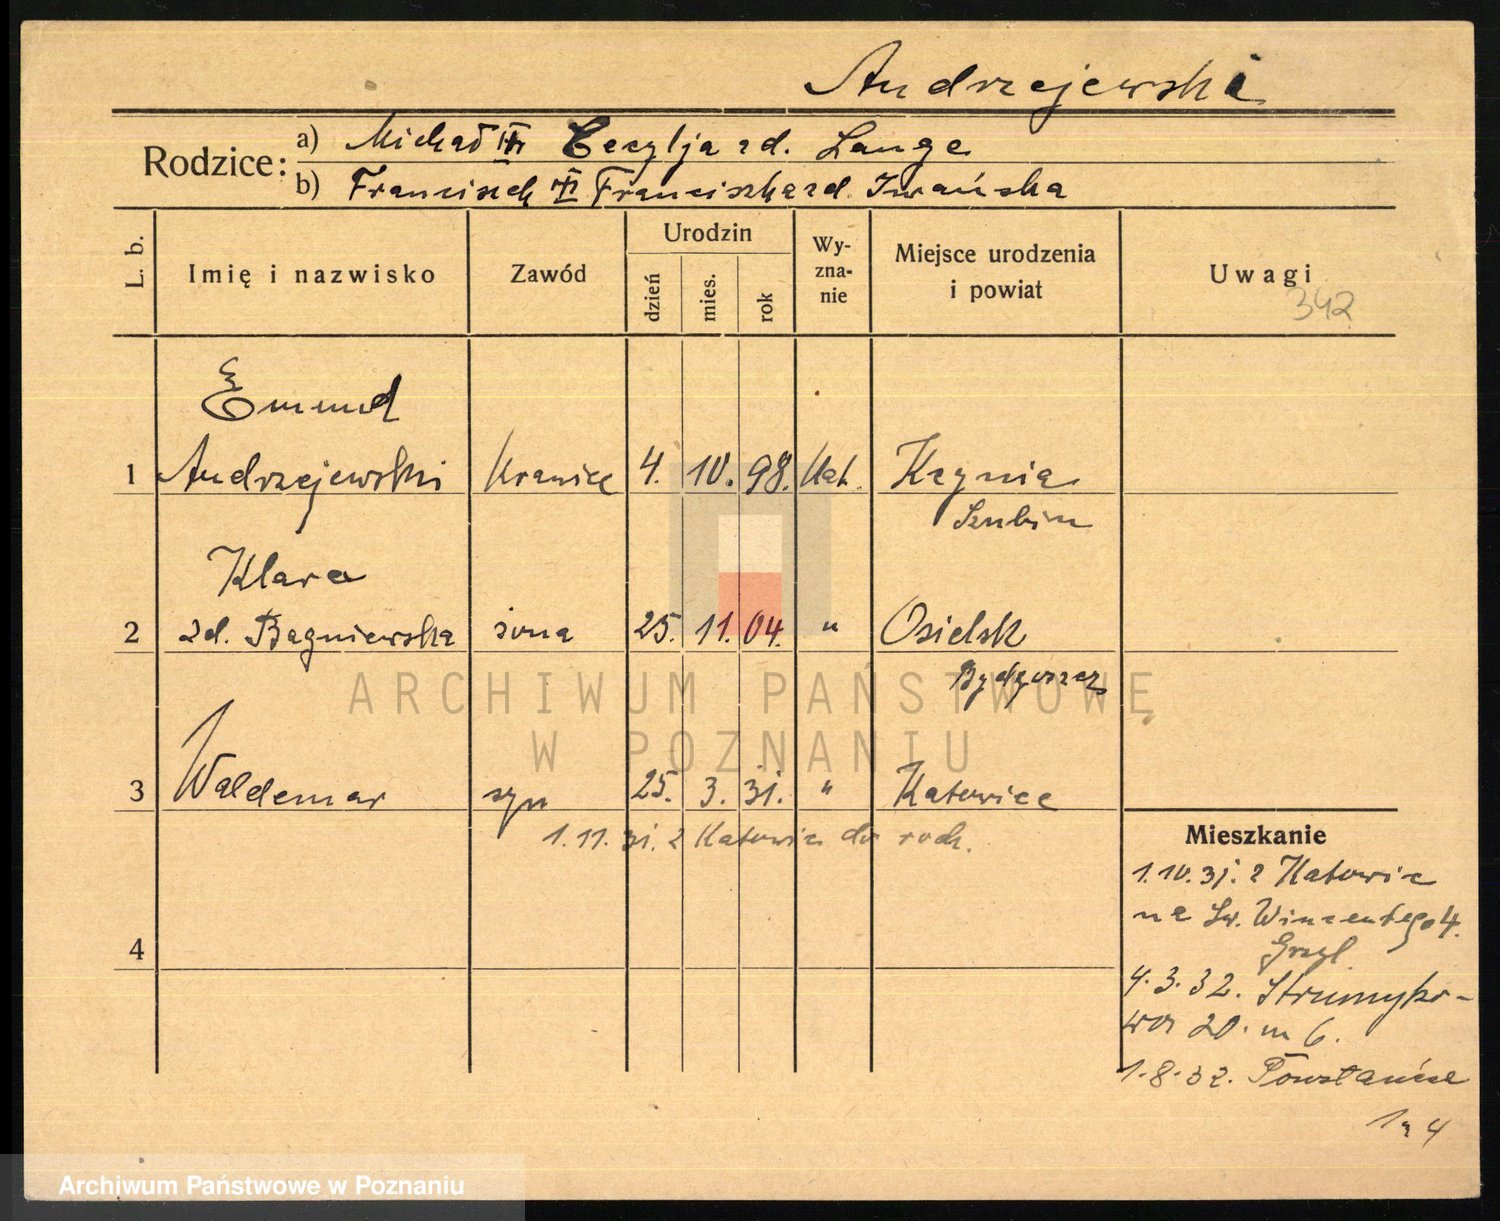 Andrzejewski
Rodzice:
a) Michał Cecylja zd. Lange
b) Franciszek Franciszka zd. Iwańska
L. b.
Imię i nazwisko
Zawód
Urodzin
dzień
mies.
rok
Wy-
zna-
nie
Miejsce urodzenia
i powiat
Uwagi
342
Emund
1 Andrzejewski krawiec 4. 10. 98. Kat. Kcynia
Szubin
Klara
2 zd. Bagniewska żona 25. 11. 04. " Osielsk
Bydgoszcz
3 Waldemar syn 25. 3. 31. " Katowice
1.11.31. z Katowic do rodz.
4
Mieszkanie
1.10.31. z Katowic
na Św. Wincentego 4.
4.3.32. Strumyko-
wa 20. m 6.
1.8.32. Powstańcza
1a 4
ARCHIWUM PAŃSTWOWE
W POZNANIU
Archiwum Państwowe w Poznaniu